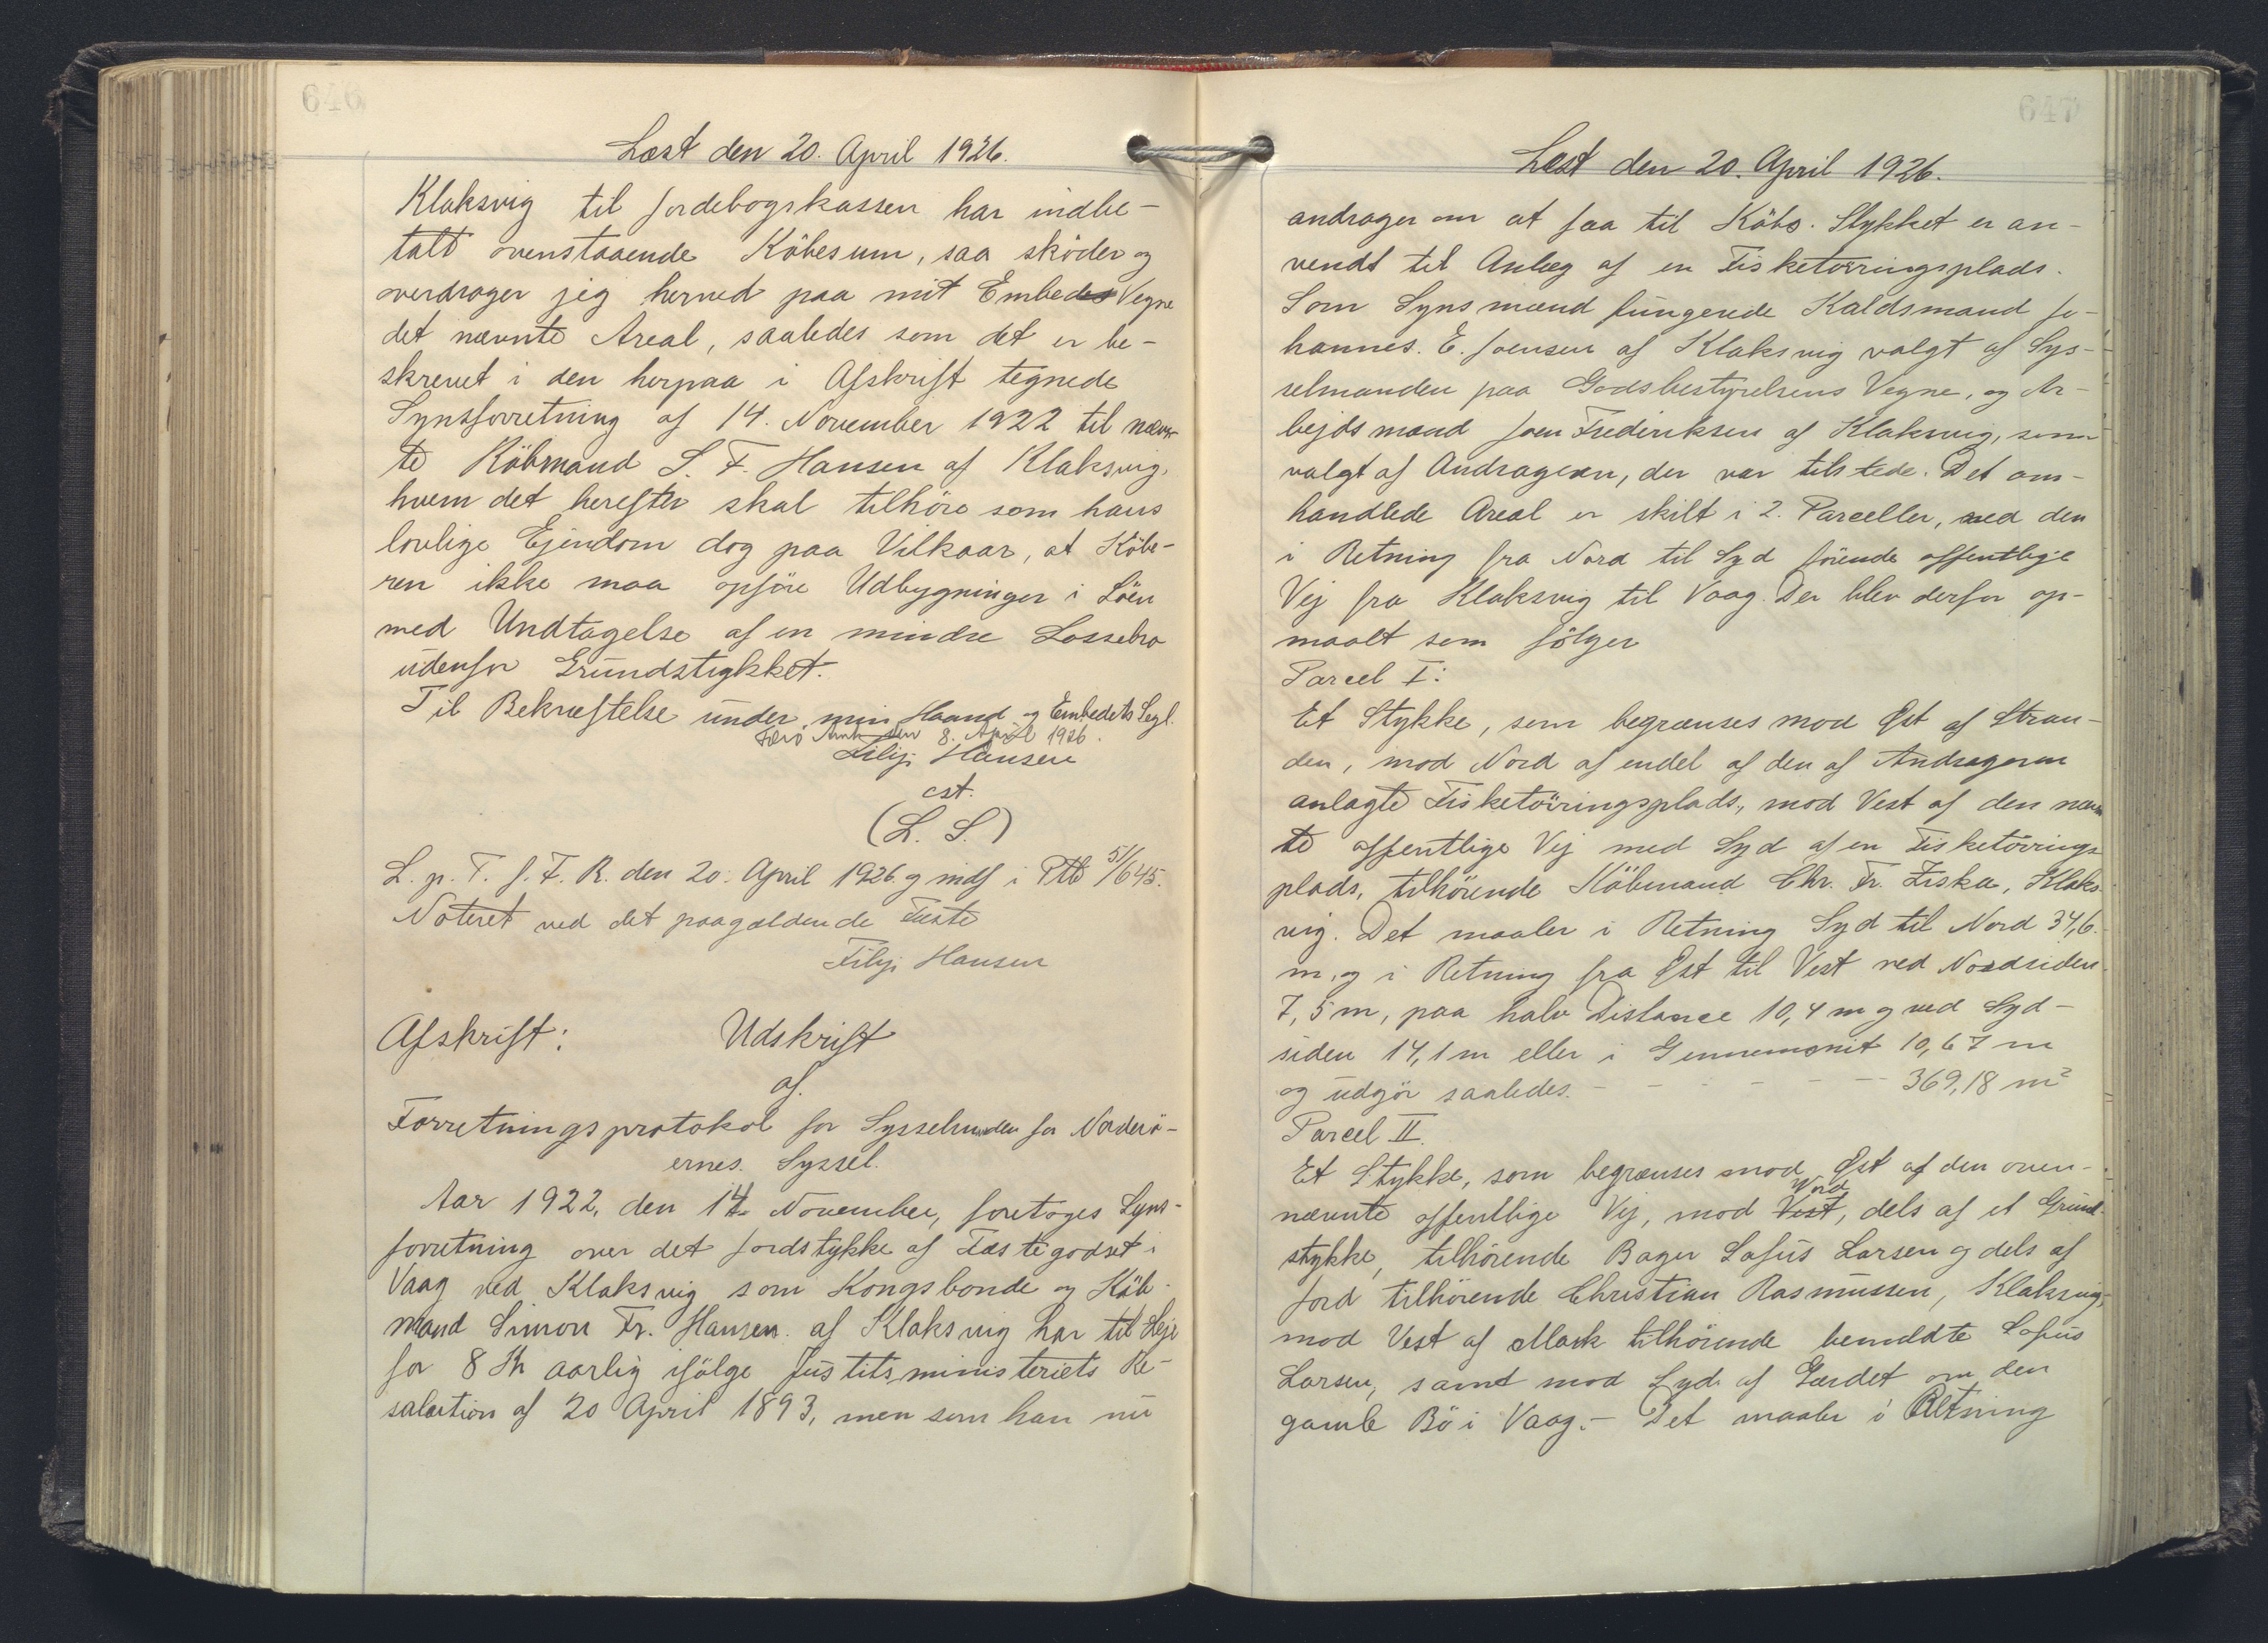 646
Læst den 20. April 1926.
Klaksvig til Jordebogskassen har indbe-
talt ovenstaaende Köbesum, saa sköder og
overdrager jeg herved paa mit Embedes Vegne
det nævnte Areal, saaledes som det er be-
skrevet i den herpaa i Afskrift tegnede
Synsforretning af 14. November 1922 til nævn-
te Köbmand S. F. Hansen af Klaksvig,
hvem det herefter skal tilhöre som hans
lovlige Ejendom dog paa Vilkaar, at Köbe-
ren ikke maa opföre Udbygninger i Söen
med Undtagelse af en mindre Lossebro
udenfor Grundstykket.
Til Bekræftelse under min Haand og Embedets Segl.
Færö Amt den 8. April 1926.
Filip Hansen
cst.
(L. S.)
L. p. T. f. F. R. den 20. April 1926 og indf i Ptb 51/645.
Noteret ved det paagældende Fæste
Filip Hansen
Afskrift: Udskrift
af
Forretningsprotokol for Sysselmanden for Norderö-
ernes. Syssel.
Aar 1922, den 14. November, foretoges Syns-
forretning over det Jordstykke af Fæstegodset i
Vaag ved Klaksvig som Kongsbonde og Köb-
mand Simon Fr. Hansen af Klaksvig har til Leje
for 8 Kr aarlig ifölge Justitsministeriets Re-
solution af 20 April 1893, men som han nu
647
Læst den 20. April 1926.
andrager om at faa til Köbs. Stykket er an-
vendt til Anlæg af en Fisketörringsplads.
Som Synsmænd fungerede Kaldsmand Jo-
hannes. E. Joensen af Klaksvig valgt af Sys-
selmanden paa Godsbestyrelsens Vegne, og Ar-
bejdsmand Joen Frederiksen af Klaksvig, som
valgt af Andrageren, der var tilstede. Det om-
handlede Areal er skilt i 2. Parceller, ved den
i Retning fra Nord til Syd förende offentlige
Vej fra Klaksvig til Vaag. Der blev derfor op-
maalt som fölger
Parcel I:
Et Stykke, som begrænses mod Øst af Stran-
den, mod Nord af endel af den af Andrageren
anlagte Fisketörringsplads, mod Vest af den nævn
te offentlige Vej mod Syd af en Fisketörrings-
plads, tilhörende Köbmand Chr. Fr. Ziska, Klaks-
vig. Det maaler i Retning Syd til Nord 34,6.
m, og i Retning fra Øst til Vest ved Nordsiden
7,5 m, paa halv Distance 10,4 m og ved Syd-
siden 14,1 m eller i Gennemsnit 10,67 m
og udgör saaledes. - - - - - - 369,18 m²
Parcel II.
Et Stykke, som begrænses mod Øst af den oven-
nævnte offentlige Vej, mod Vest Nord, dels af et Grund-
stykke, tilhörende Bager Sofus Larsen og dels af
Jord tilhörende Christian Rasmussen, Klaksvig,
mod Vest af Mark tilhörende bemeldte Sofus
Larsen, samt mod Syd af Gærdet om den
gamle Bö i Vaag. - Det maaler i Retning